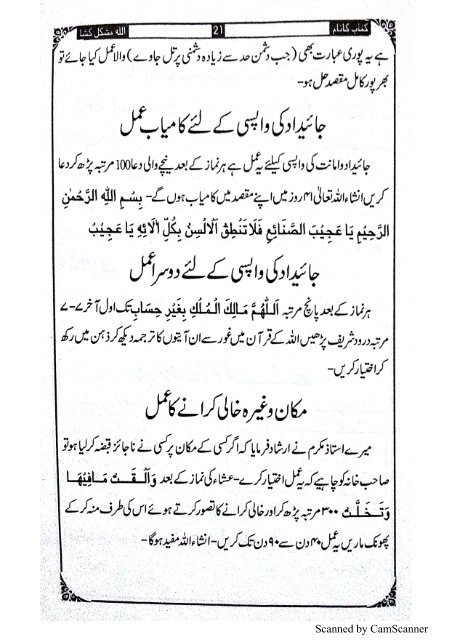 کتاب کا نام 21 اللہ مشکل کشا
ہے یہ پوری عبارت بھی (جب دشمن حد سے زیادہ دشمنی پر تل جاوے) والا عمل کیا جائے تو
بھرپور کامل مقصد حل ہو۔
جائیداد کی واپسی کے لئے کامیاب عمل
جائیداد و امانت کی واپسی کیلئے یہ عمل ہے ہر نماز کے بعد نیچے والی دعا 100 مرتبہ پڑھ کر دعا
کریں انشاء اللہ تعالیٰ ۴۱ روز میں اپنے مقصد میں کامیاب ہوں گے۔ بِسْمِ اللهِ الرَّحْمٰنِ
الرَّحِیْمِ یَا عَجِیْبَ الصَّنَائِعِ فَلَا تَنْطِقُ الْاَلْسِنُ بِکُلِّ اٰلَائِهٖ یَا عَجِیْبُ
جائیداد کی واپسی کے لئے دوسرا عمل
ہر نماز کے بعد پانچ مرتبہ اَللّٰهُمَّ مَالِکَ الْمُلْکِ بِغَیْرِ حِسَابٍ تک اول آخر ۷-۷
مرتبہ درود شریف پڑھیں اللہ کے قرآن میں غور سے ان آیتوں کا ترجمہ دیکھ کر ذہن میں رکھ
کر اختیار کریں۔
مکان وغیرہ خالی کرانے کا عمل
میرے استاذ مکرم نے ارشاد فرمایا کہ اگر کسی کے مکان پر کسی نے ناجائز قبضہ کر لیا ہو تو
صاحب خانہ کو چاہیے کہ یہ عمل اختیار کرے۔ عشاء کی نماز کے بعد وَاَلْقَتْ مَافِیْهَا
وَتَخَلَّتْ ۳۰۰ مرتبہ پڑھ کر اور خالی کرانے کا تصور کرتے ہوئے اس کی طرف منہ کر کے
پھونک ماریں یہ عمل ۴۰ دن سے ۹۰ دن تک کریں۔ انشاء اللہ مفید ہوگا۔
Scanned by CamScanner